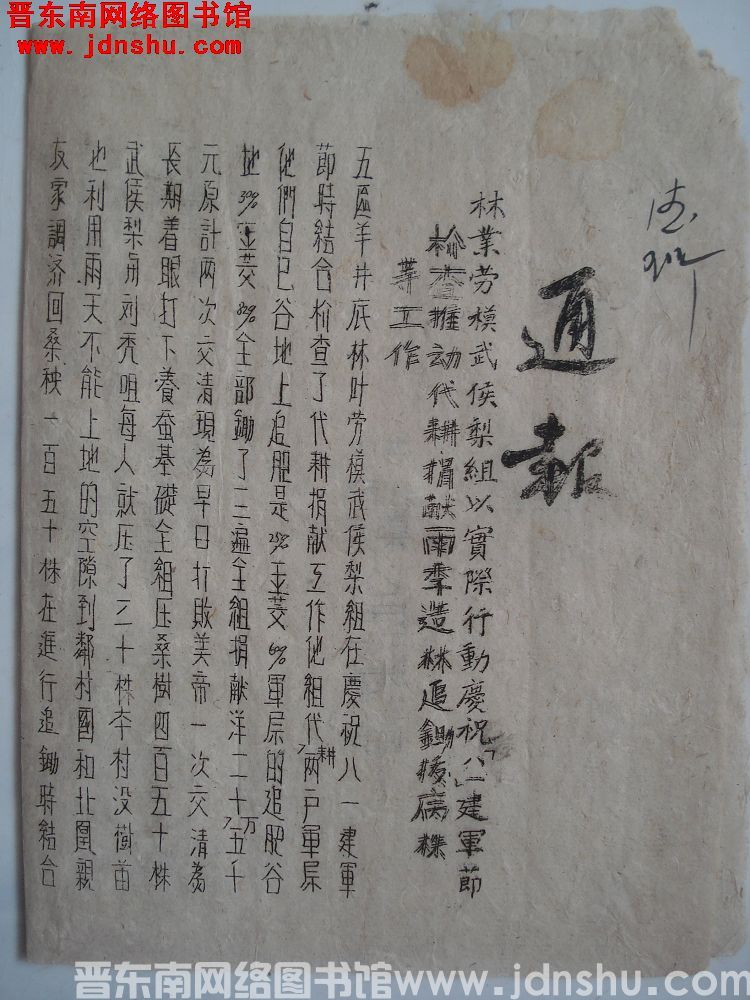 晋东南网络图书馆
www.jdnshu.com
通報
林業劳模武侯梨組以實際行動慶祝「八一」建軍節
檢查推动代耕捐献雨季造林追鋤拔病株
等工作
五區羊井底林叶劳模武侯梨組在慶祝八一建軍
節時結合檢查了代耕捐献工作他組代耕两户軍屬
他們自已谷地上追肥是25%玉茭60%軍屬的追肥谷
地30%玉茭82%全部鋤了三遍全組捐献洋二十万五千
元原計两次交清現為早日打敗美帝一次交清為
長期着眼打下養蚕基礎全組压桑樹四百五十株
武侯梨和刘秃咀每人就压了三十株本村没樹苗
他利用雨天不能上地的空隙到鄰村和北凰親
友家調济回桑秧一百五十株在進行追鋤時結合
晋东南网络图书馆www.jdnshu.com